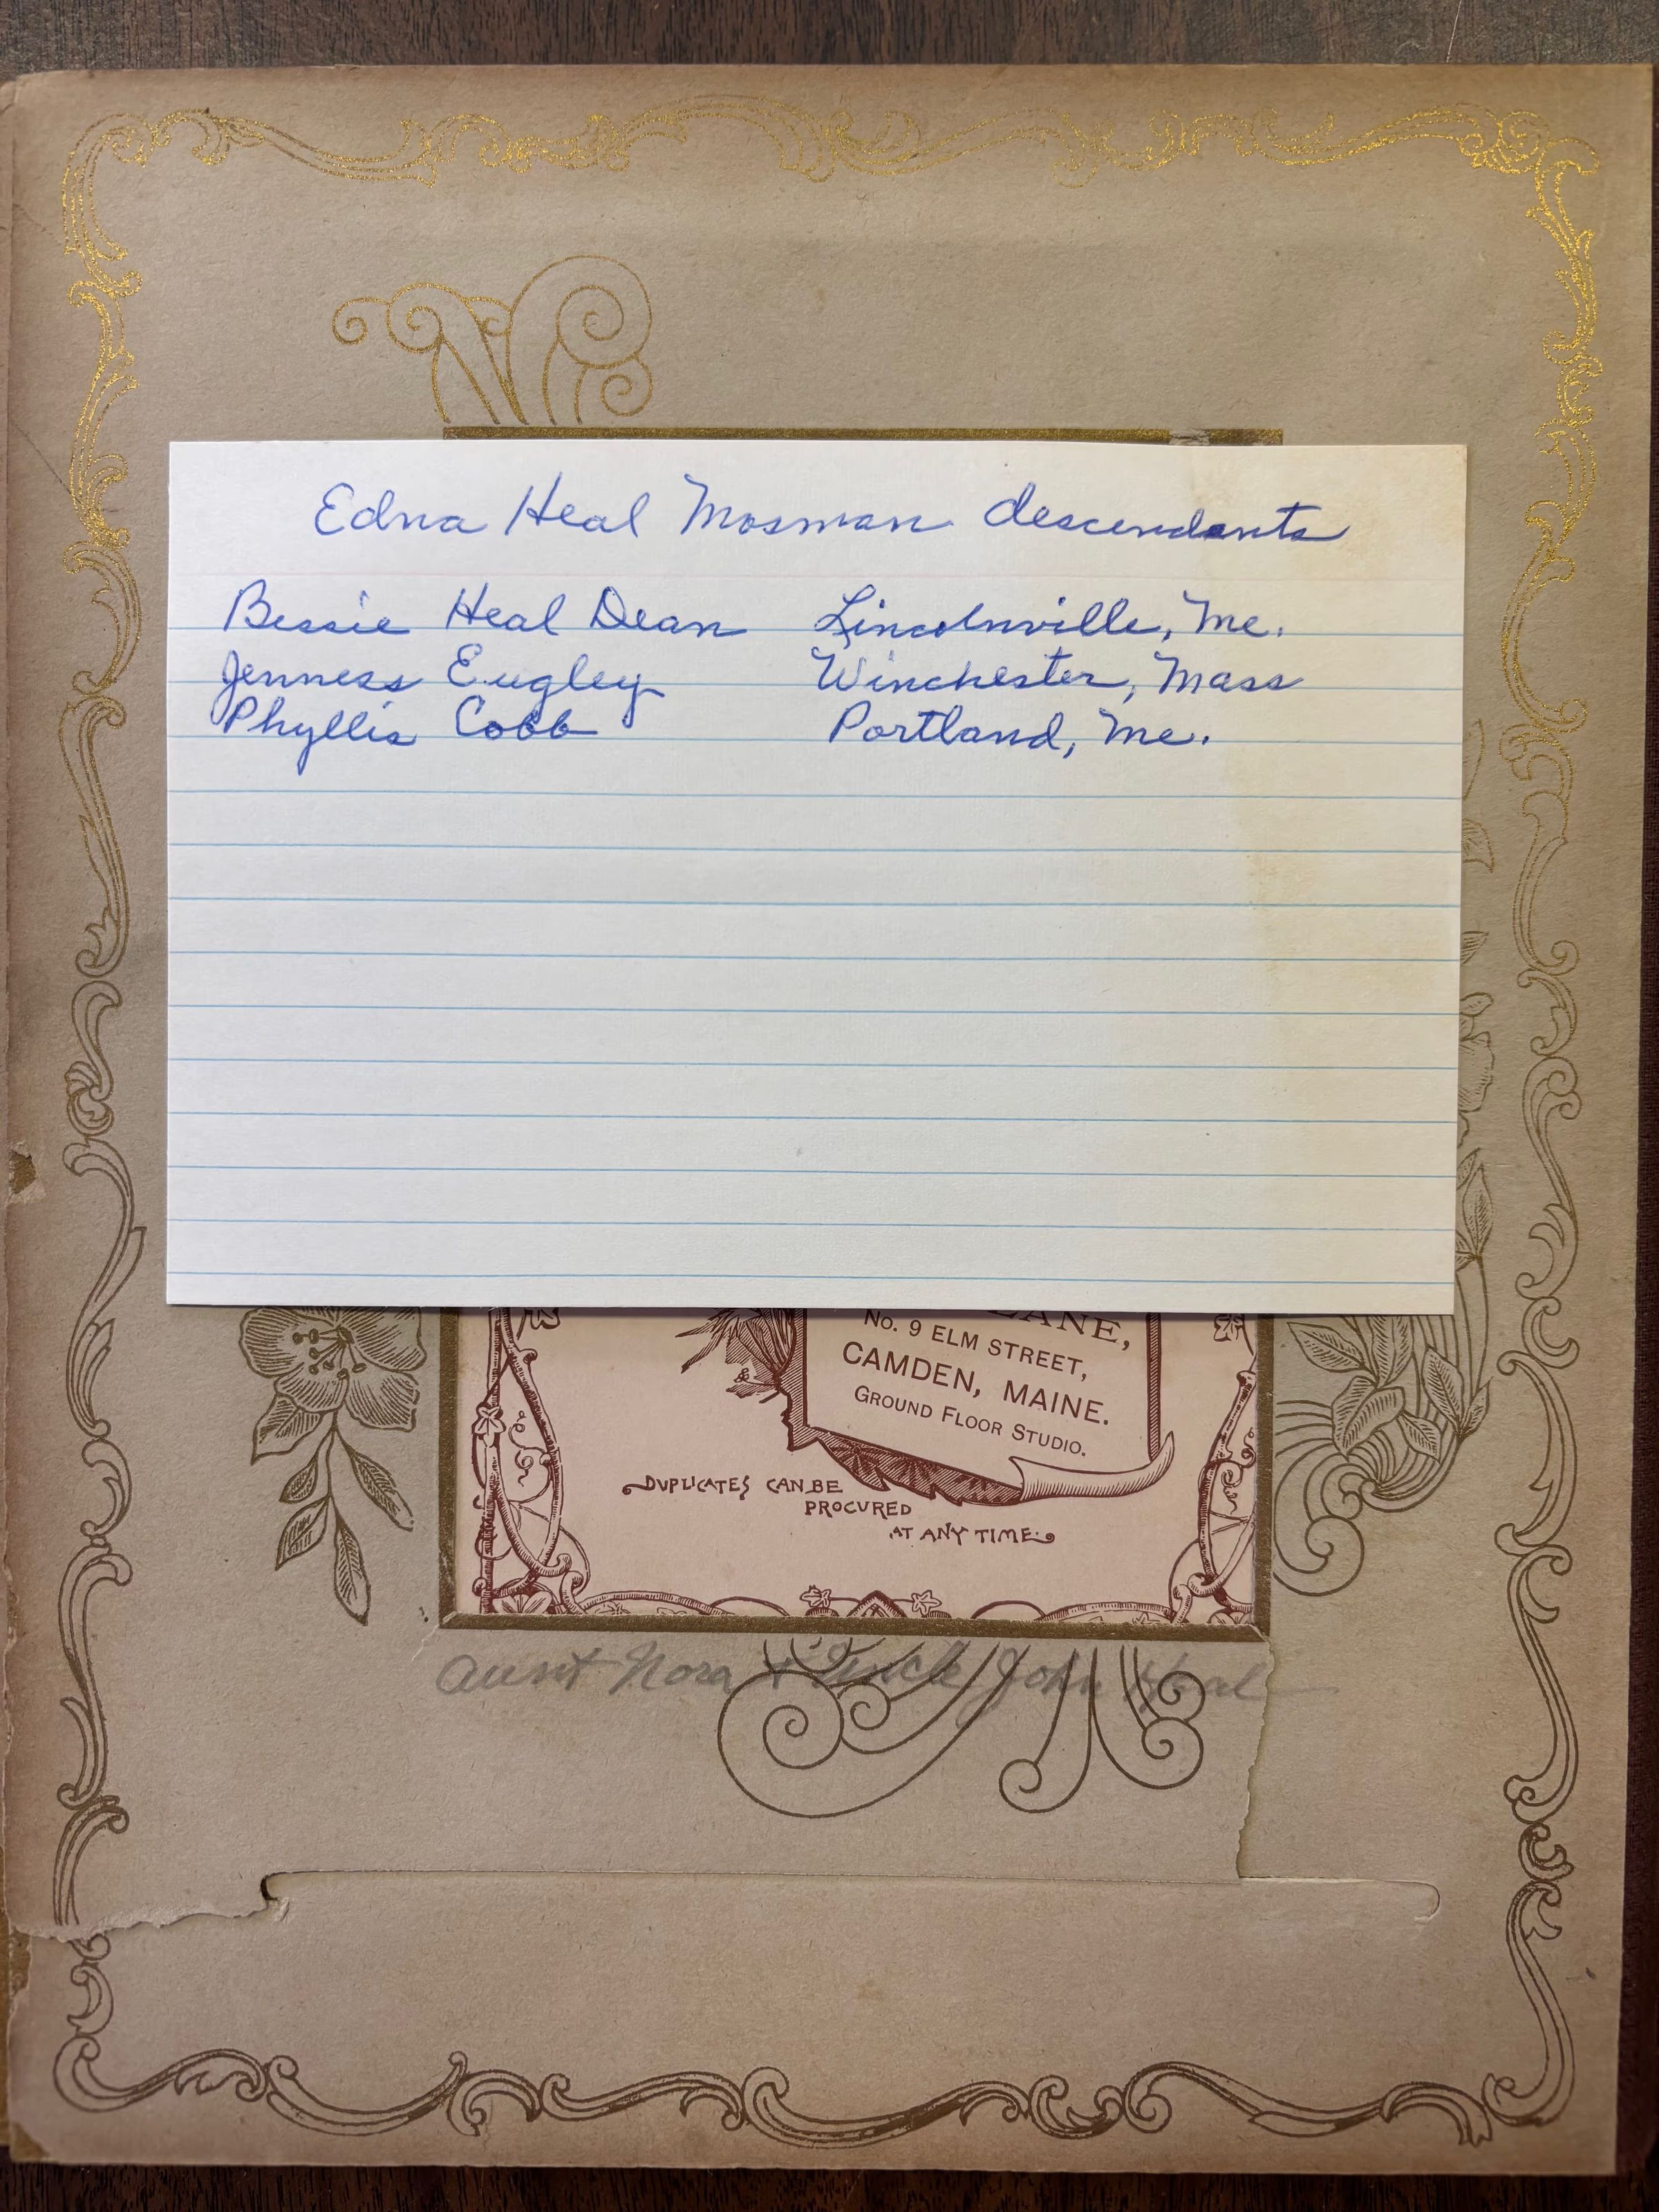 Edna Heal Mosman descendants
Bessie Heal Dean Lincolnville, Me.
Jenness Eugley Winchester, Mass
Phyllis Cobb Portland, Me.
LANE,
No. 9 ELM STREET,
CAMDEN, MAINE.
GROUND FLOOR STUDIO.
DUPLICATES CAN BE
PROCURED
AT ANY TIME.
Aunt Nora + Uncle John Heal